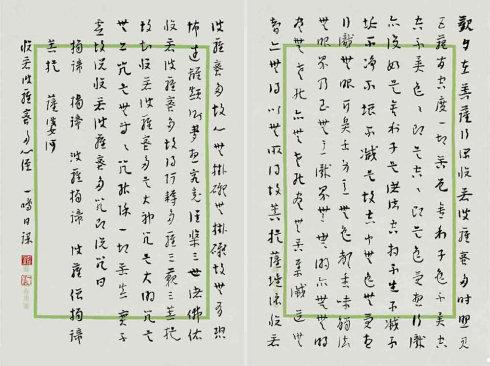 觀自在菩薩行深般若波羅蜜多時照見
五蘊皆空度一切苦厄舍利子色不異空
空不異色色即是空空即是色受想行識
亦復如是舍利子是諸法空相不生不滅不
垢不淨不增不減是故空中無色無受想
行識無眼耳鼻舌身意無色聲香味觸法
無眼界乃至無意識界無無明亦無無明
盡乃至無老死亦無老死盡無苦集滅道無
智亦無得以無所得故菩提薩埵依般若
波羅蜜多故心無掛礙無掛礙故無有恐
怖遠離顛倒夢想究竟涅槃三世諸佛依
般若波羅蜜多故得阿耨多羅三藐三菩提
故知般若波羅蜜多是大神咒是大明咒是
無上咒是無等等咒能除一切苦真實不
虛故說般若波羅蜜多咒即說咒曰
揭諦 揭諦 波羅揭諦 波羅僧揭諦
菩提 薩婆訶
般若波羅蜜多心經 一鳴日課